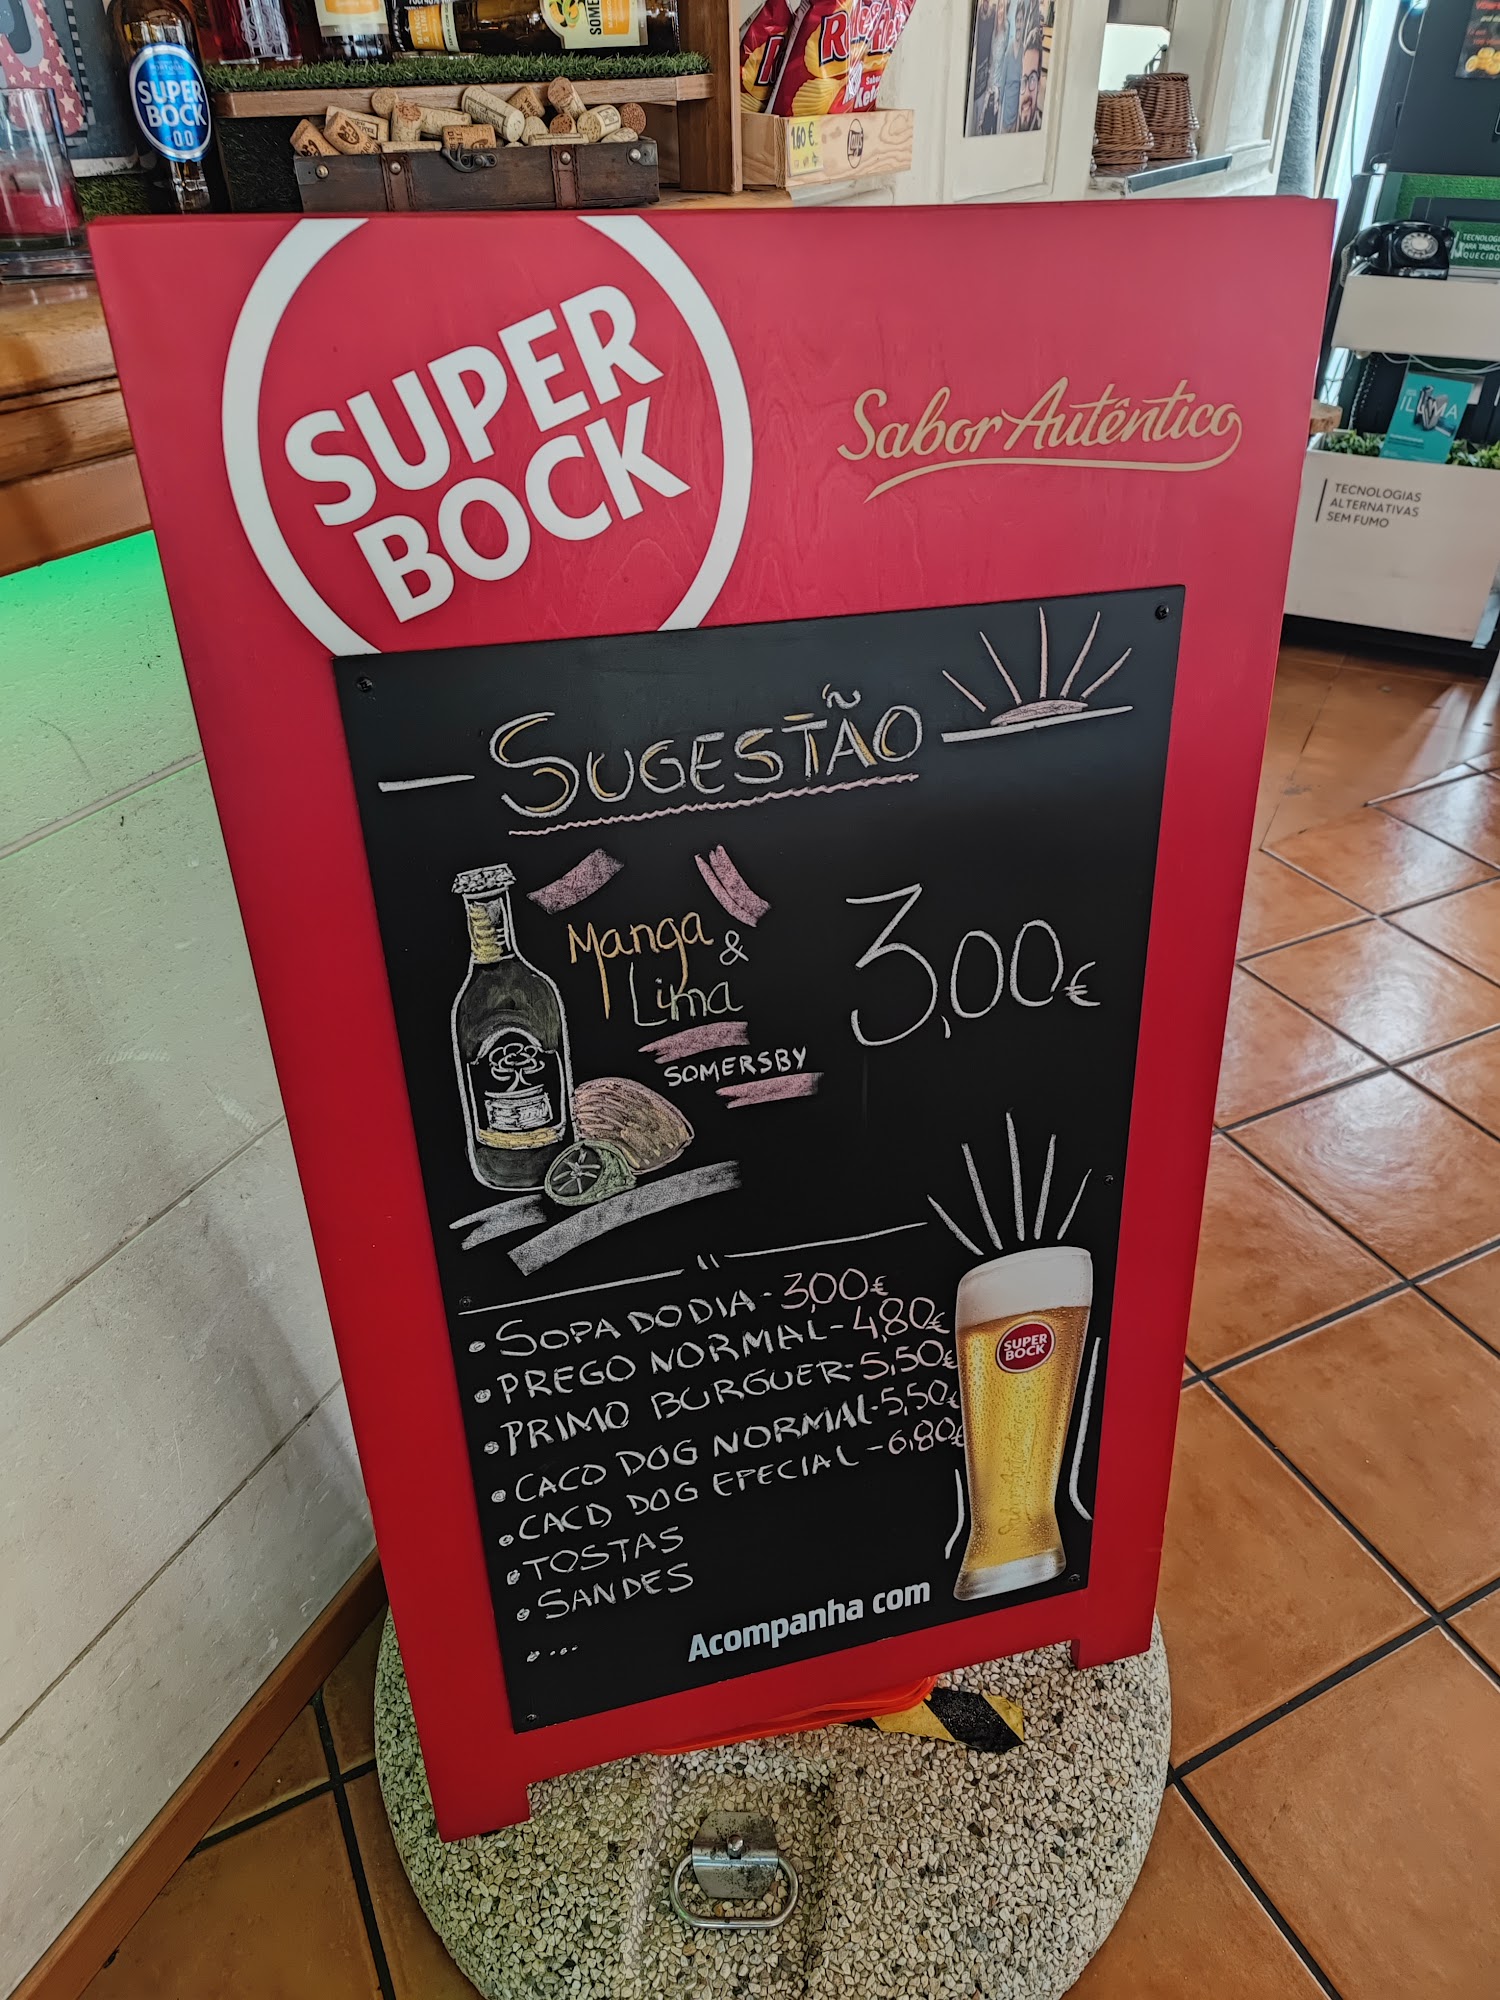 SUPER
BOCK
00
SOME
1.60 €
TECNOLOGIAS
ALTERNATIVAS
SEM FUMO
SUPER
BOCK
Sabor Autêntico
SUGESTÃO
Manga &
Lima
SOMERSBY
3,00€
• SOPA DO DIA - 3,00€
• PREGO NORMAL - 4,80€
• PRIMO BURGUER - 5,50€
• CACO DOG NORMAL - 5,50€
• CACO DOG EPECIAL - 6,80€
• TOSTAS
• SANDES
• ....
SUPER
BOCK
Acompanha com